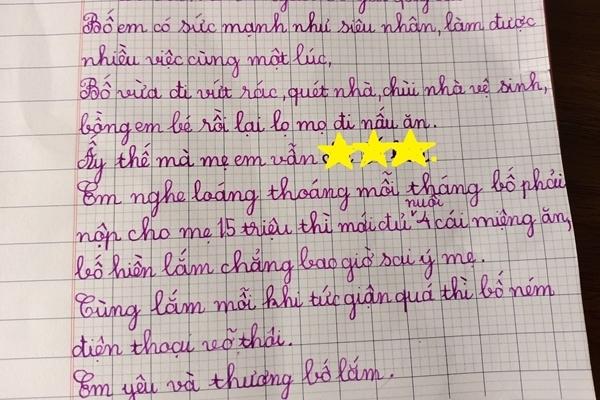 Bố em có sức mạnh như siêu nhân, làm được
nhiều việc cùng một lúc,
Bố vừa đi vứt rác, quét nhà, chùi nhà vệ sinh,
bồng em bé rồi lại lọ mọ đi nấu ăn.
Ấy thế mà mẹ em vẫn
Em nghe loáng thoáng mỗi tháng bố phải
nộp cho mẹ 15 triệu thì mới đủ nuôi 4 cái miệng ăn,
bố hiền lắm chẳng bao giờ sai ý mẹ.
Cùng lắm mỗi khi tức giận quá thì bố ném
điện thoại vỡ thôi.
Em yêu và thương bố lắm.